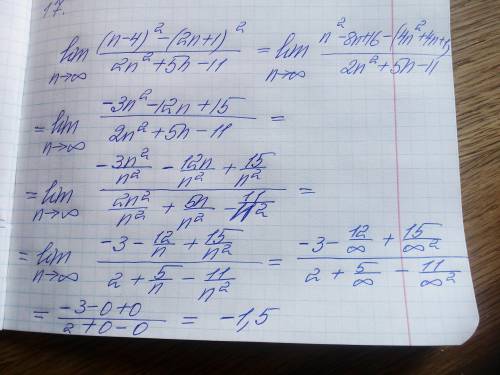 17.
lim n→∞ ((n-4)² - (2n+1)²)/(2n²+5n-11) = lim n→∞ (n²-8n+16-(4n²+4n+1)/(2n²+5n-11)
= lim n→∞ (-3n²-12n+15)/(2n²+5n-11) =
= lim n→∞ (-3n²/n² - 12n/n² + 15/n²)/(2n²/n² + 5n/n² - 11/n²) =
= lim n→∞ (-3 - 12/n + 15/n²)/(2 + 5/n - 11/n²) = (-3 - 12/∞ + 15/∞²)/(2 + 5/∞ - 11/∞²)
= (-3-0+0)/(2+0-0) = -1,5